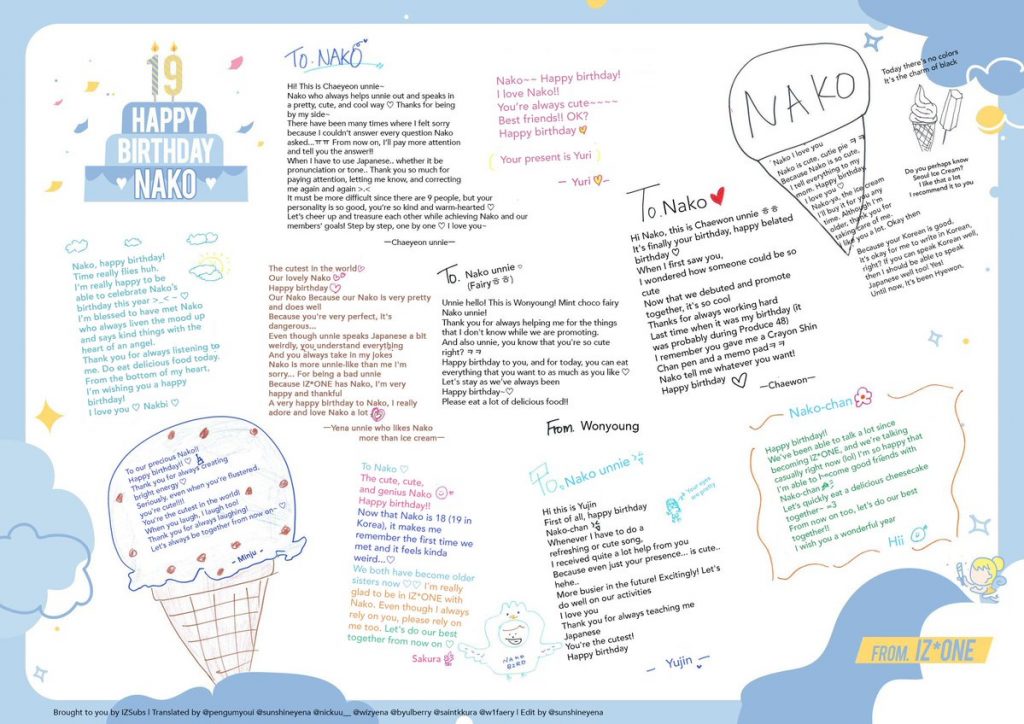 19
HAPPY
BIRTHDAY
NAKO
To. NAKO
Hi! This is Chaeyeon unnie~
Nako who always helps unnie out and speaks in
a pretty, cute, and cool way ♡ Thanks for being
by my side~
There have been many times where I felt sorry
because I couldn't answer every question Nako
asked...ㅠㅠ From now on, I'll pay more attention
and tell you the answer!!
When I have to use Japanese.. whether it be
pronunciation or tone.. Thank you so much for
paying attention, letting me know, and correcting
me again and again >.<
It must be more difficult since there are 9 people, but your
personality is so good, you're so kind and warm-hearted ♡
Let's cheer up and treasure each other while achieving Nako and our
members' goals! Step by step, one by one ♡ I love you~
—Chaeyeon unnie—
Nako~~ Happy birthday!
I love Nako!!
You're always cute~~~~
Best friends!! OK?
Happy birthday
Your present is Yuri
— Yuri —
NAKO
Nako I love you
Nako is cute, cutie pie ㅋㅋ
Because Nako is so cute,
I tell everything to my
mom. Happy birthday
I love you ♡
Nako-ya, the ice cream
I'll buy it for you any
time. Although I'm
older, thank you for
taking care of me.
I like you a lot. Okay then
Because your Korean is good,
it's okay for me to write in Korean,
right? If you can speak Korean well,
then I should be able to speak
Japanese well too! Yes!
Until now, It's been Hyewon.
Today there's no colors
It's the charm of black
Do you perhaps know
Seoul Ice Cream?
I like that a lot
I recommend it to you
Nako, happy birthday!
Time really flies huh.
I'm really happy to be
able to celebrate Nako's
birthday this year >_< ~ ♡
I'm blessed to have met Nako
who always liven the mood up
and says kind things with the
heart of an angel.
Thank you for always listening to
me. Do eat delicious food today.
From the bottom of my heart,
I'm wishing you a happy
birthday!
I love you ♡ Nakbi ♡
The cutest in the world
Our lovely Nako
Happy birthday
Our Nako Because our Nako is very pretty
and does well
Because you're very perfect, it's
dangerous...
Even though unnie speaks Japanese a bit
weirdly, you understand everything
And you always take in my jokes
Nako is more unnie-like than me I'm
sorry... For being a bad unnie
Because IZ*ONE has Nako, I'm very
happy and thankful
A very happy birthday to Nako, I really
adore and love Nako a lot
—Yena unnie who likes Nako
more than ice cream—
To. Nako unnie ♡
(Fairyㅎㅎ)
Unnie hello! This is Wonyoung! Mint choco fairy
Nako unnie!
Thank you for always helping me for the things
that I don't know while we are promoting.
And also unnie, you know that you're so cute
right? ㅋㅋ
Happy birthday to you, and for today, you can eat
everything that you want to as much as you like ♡
Let's stay as we've always been
Happy birthday~♡
Please eat a lot of delicious food!!
From. Wonyoung
To. Nako
Hi Nako, this is Chaewon unnie ㅎㅎ
It's finally your birthday, happy belated
birthday ♡
When I first saw you,
I wondered how someone could be so
cute
Now that we debuted and promote
together, it's so cool
Thanks for always working hard
Last time when it was my birthday (it
was probably during Produce 48)
I remember you gave me a Crayon Shin
Chan pen and a memo padㅋㅋ
Nako tell me whatever you want!
Happy birthday
—Chaewon—
To our precious Nako!!
Happy birthday!! ♡
Thank you for always creating
bright energy ♡
Seriously, even when you're flustered,
you're cute!!!!
You're the cutest in the world!
When you laugh, I laugh too!
Thank you for always laughing!
Let's always be together from now on~ ♡
- Minju -
To Nako ♡
The cute, cute,
and genius Nako
Happy birthday!!
Now that Nako is 18 (19 in
Korea), it makes me
remember the first time we
met and it feels kinda
weird...♡
We both have become older
sisters now ♡♡ I'm really
glad to be in IZ*ONE with
Nako. Even though I always
rely on you, please rely on
me too. Let's do our best
together from now on ♡
Sakura
NAKO
BIRD
To. Nako unnie
Your eyes
are pretty
Hi this is Yujin
First of all, happy birthday
Nako-chan
Whenever I have to do a
refreshing or cute song,
I received quite a lot help from you
Because even just your presence... is cute..
hehe..
More busier in the future! Excitingly! Let's
do well on our activities
I love you
Thank you for always teaching me
Japanese
You're the cutest!
Happy birthday
— Yujin —
Nako-chan
Happy birthday!!
We've been able to talk a lot since
becoming IZ*ONE, and we're talking
casually right now (lol) I'm so happy that
I'm able to become good friends with
Nako-chan
Let's quickly eat a delicious cheesecake
together~ =3
From now on too, let's do our best
together!!
I wish you a wonderful year
Hii
FROM. IZ*ONE
Brought to you by IZSubs | Translated by @pengumyoui @sunshineyena @nickuu__ @wizyena @byulberry @saintkkura @w1faery | Edit by @sunshineyena